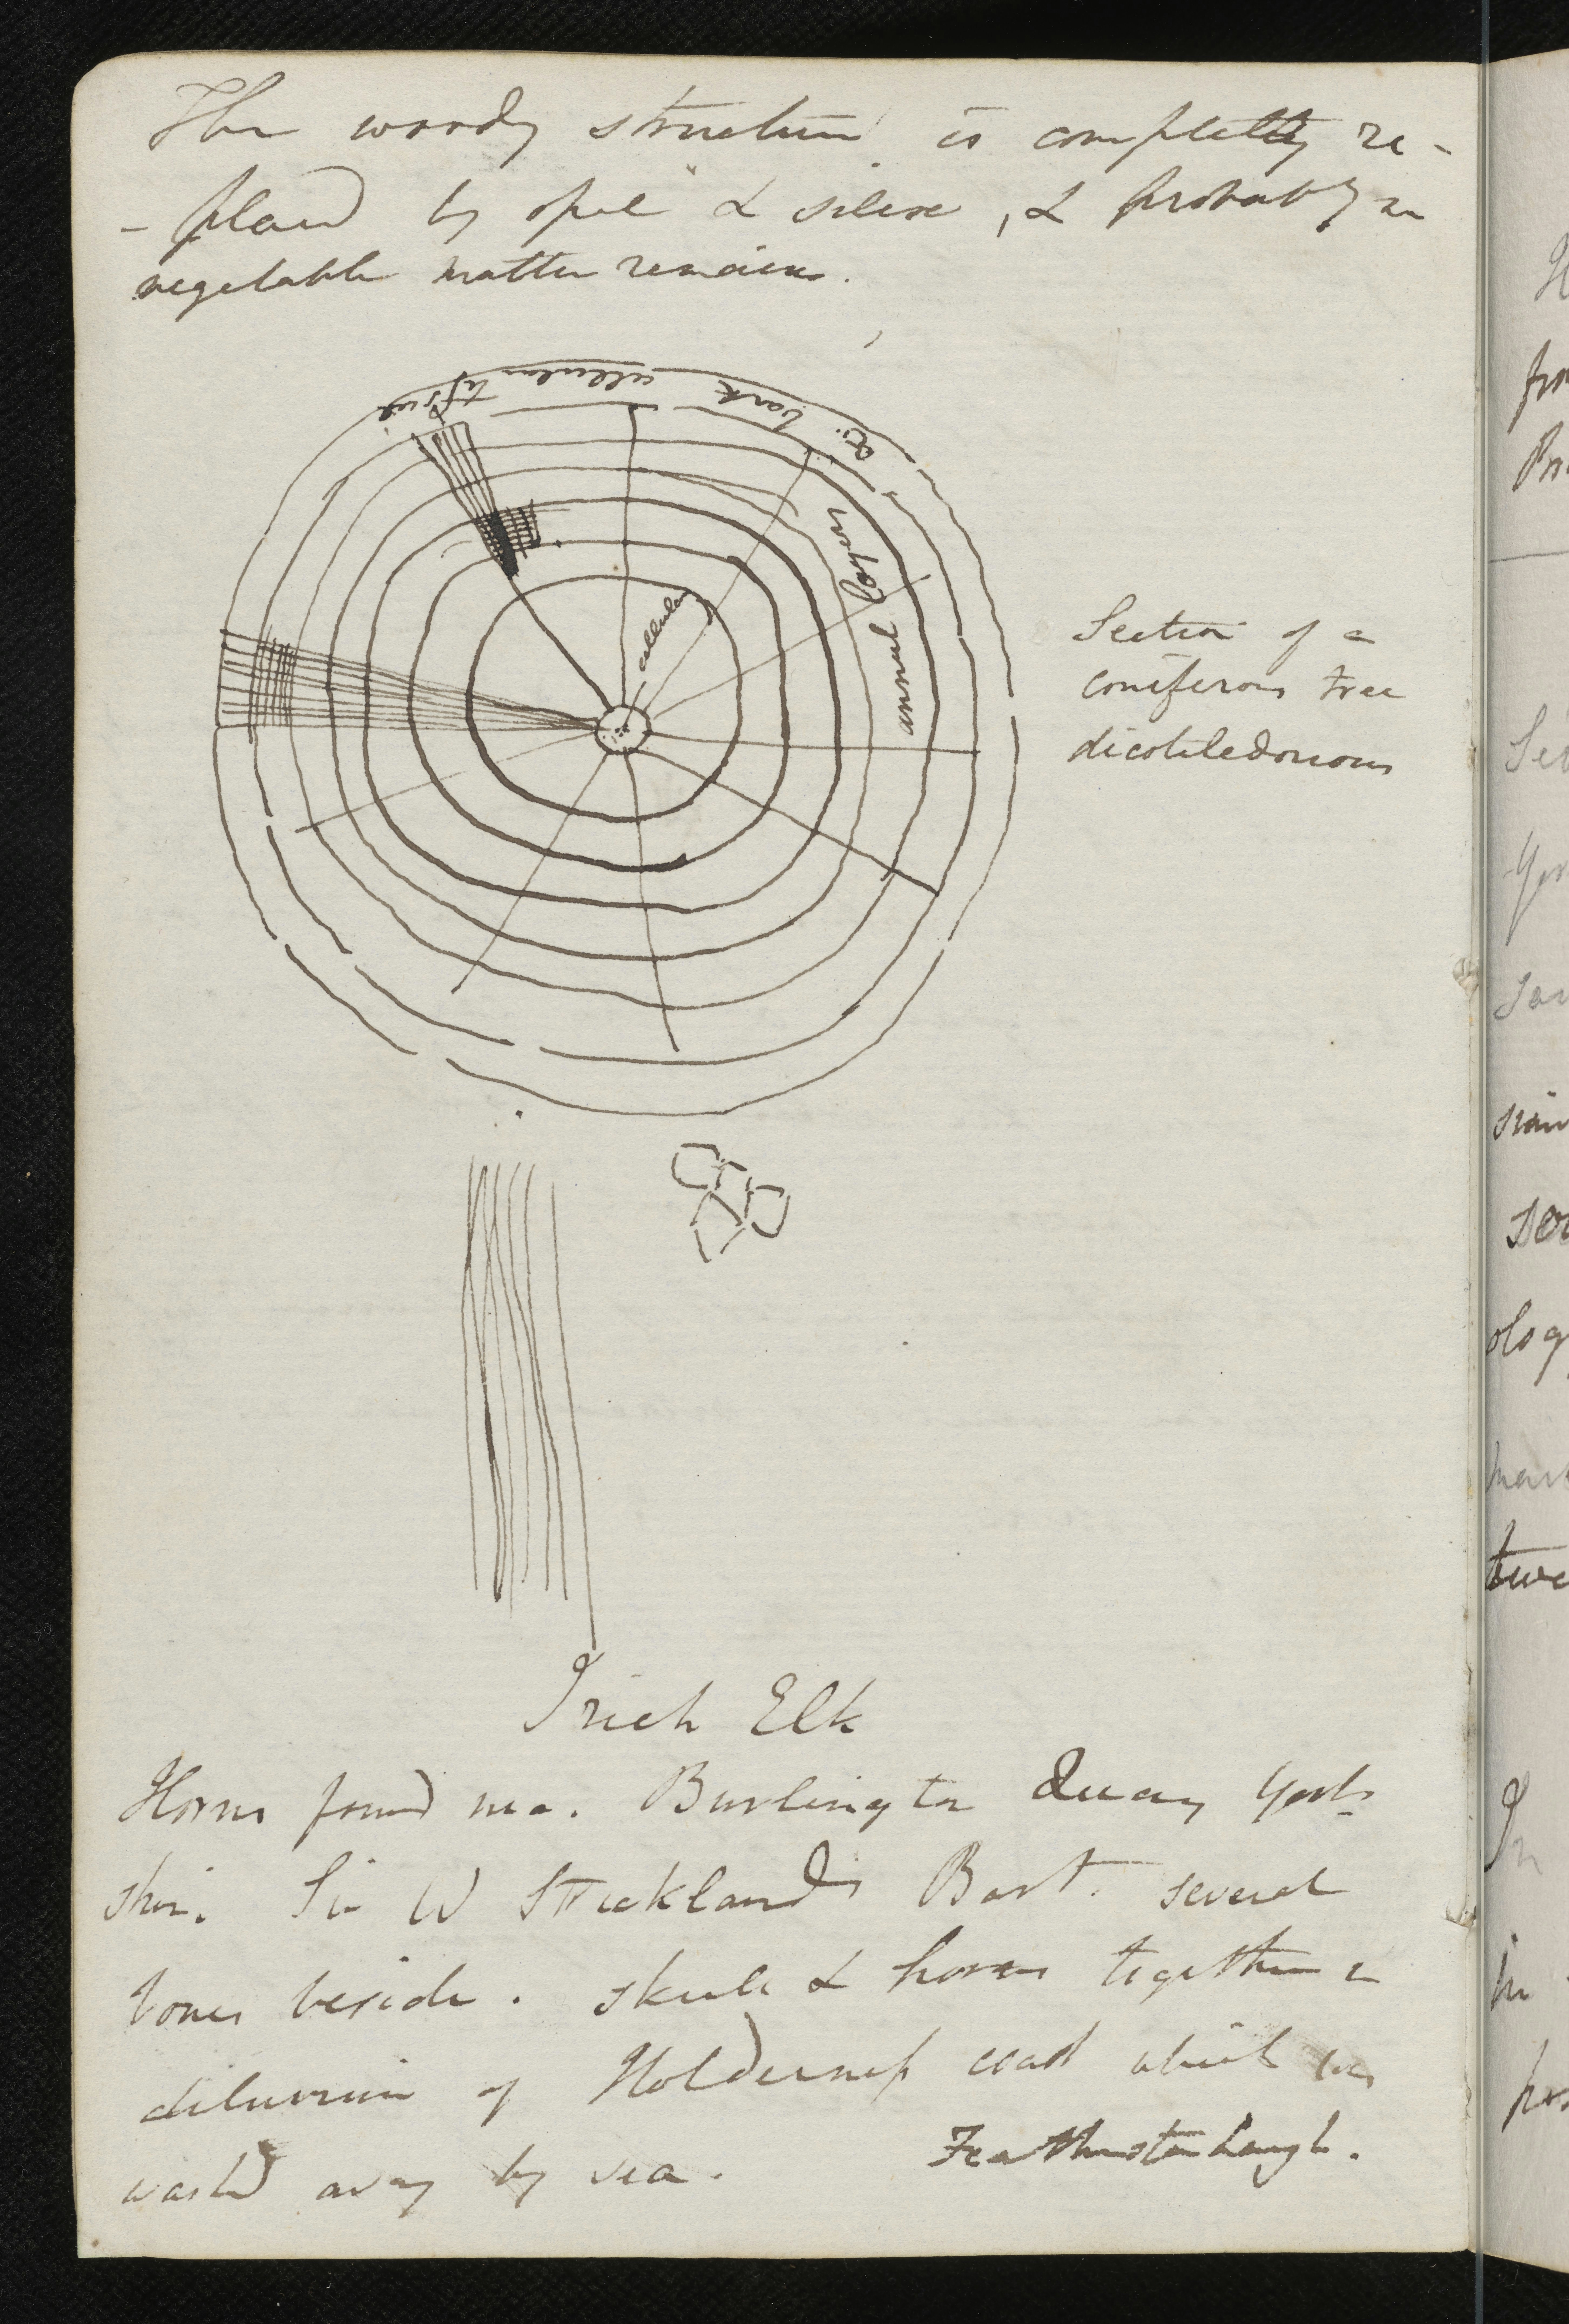 The woody structure is completely re-
- placed by opal & silex, & probably no
vegetable matter remains.
bark cellular tissue
cellular
annual layers
Section of a
coniferous tree
dicotiledonous
Irish Elk
Horns found nea. Burlington Quay York-
shire. Sir W Stricklands Bart. several
bones beside. skull & horns together in
diluvium of Holderness coast which was
washed away by sea.
Featherstonhaugh.